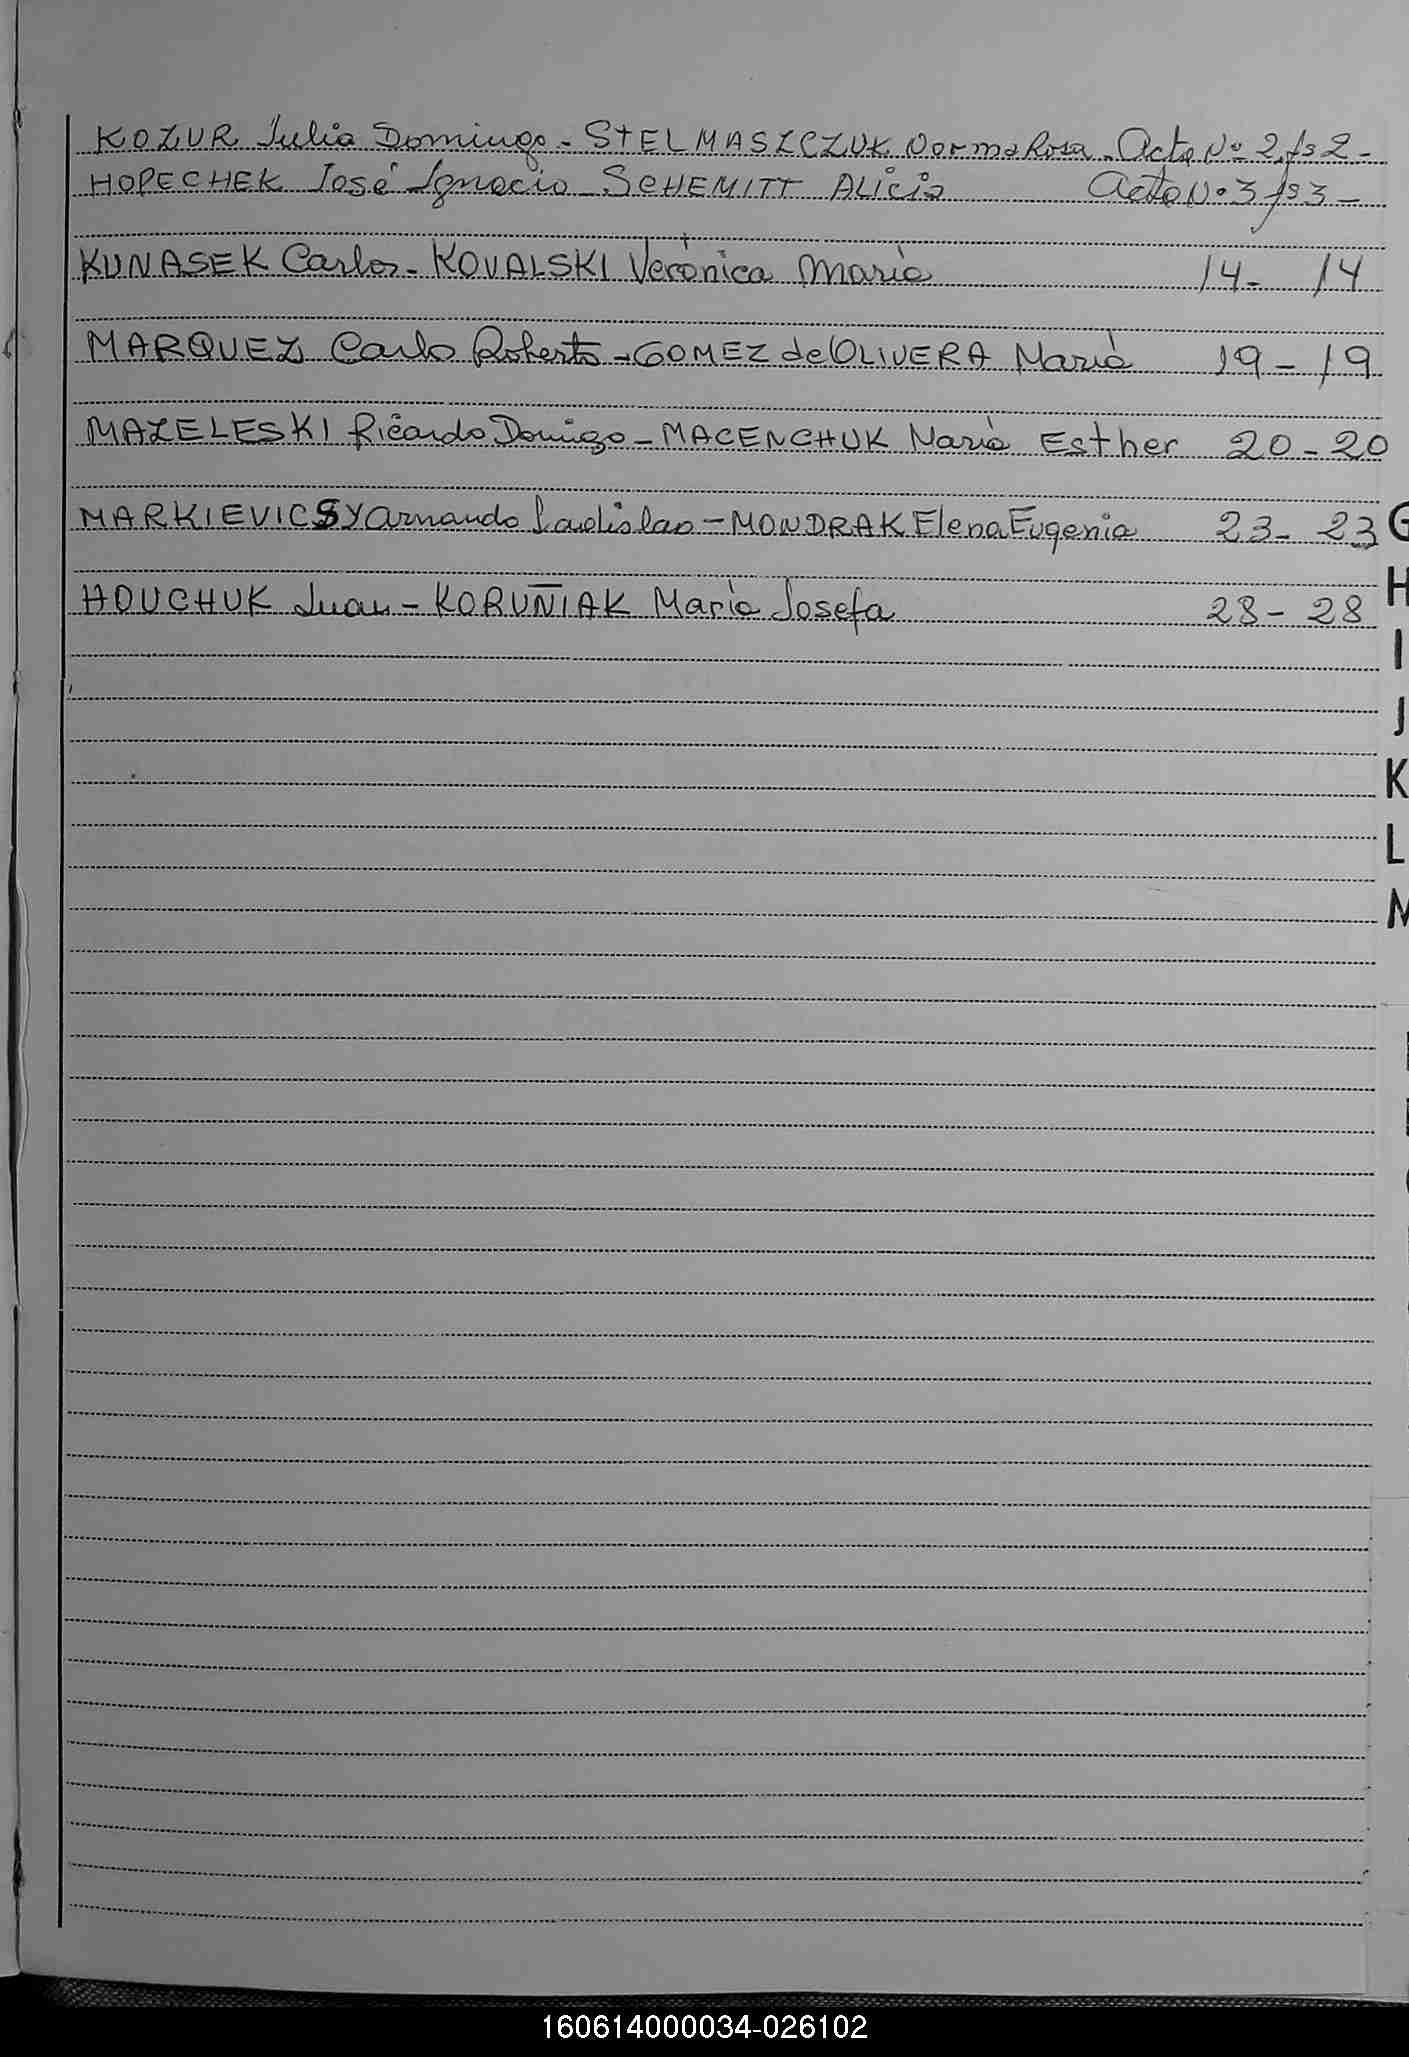 KOZUR Julio Domingo - STELMASZCZUK Norma Rosa. Acta Nº 2 fs 2 -
HOPECHEK José Ignacio SCHEMITT ALicia Acta Nº 3 fs 3 -
KUNASEK Carlos - KOVALSKI Verónica María 14 - 14
MARQUEZ Carlo Roberto - GOMEZ de OLIVERA María 19 - 19
MAZELESKI Ricardo Domigo - MACENCHUK María Esther 20 - 20
MARKIEVICSY Armando Ladislao - MONDRAK Elena Eugenia 23 - 23
HOUCHUK Juan - KORUÑIAK María Josefa 28 - 28
G
H
I
J
K
L
M
160614000034-026102